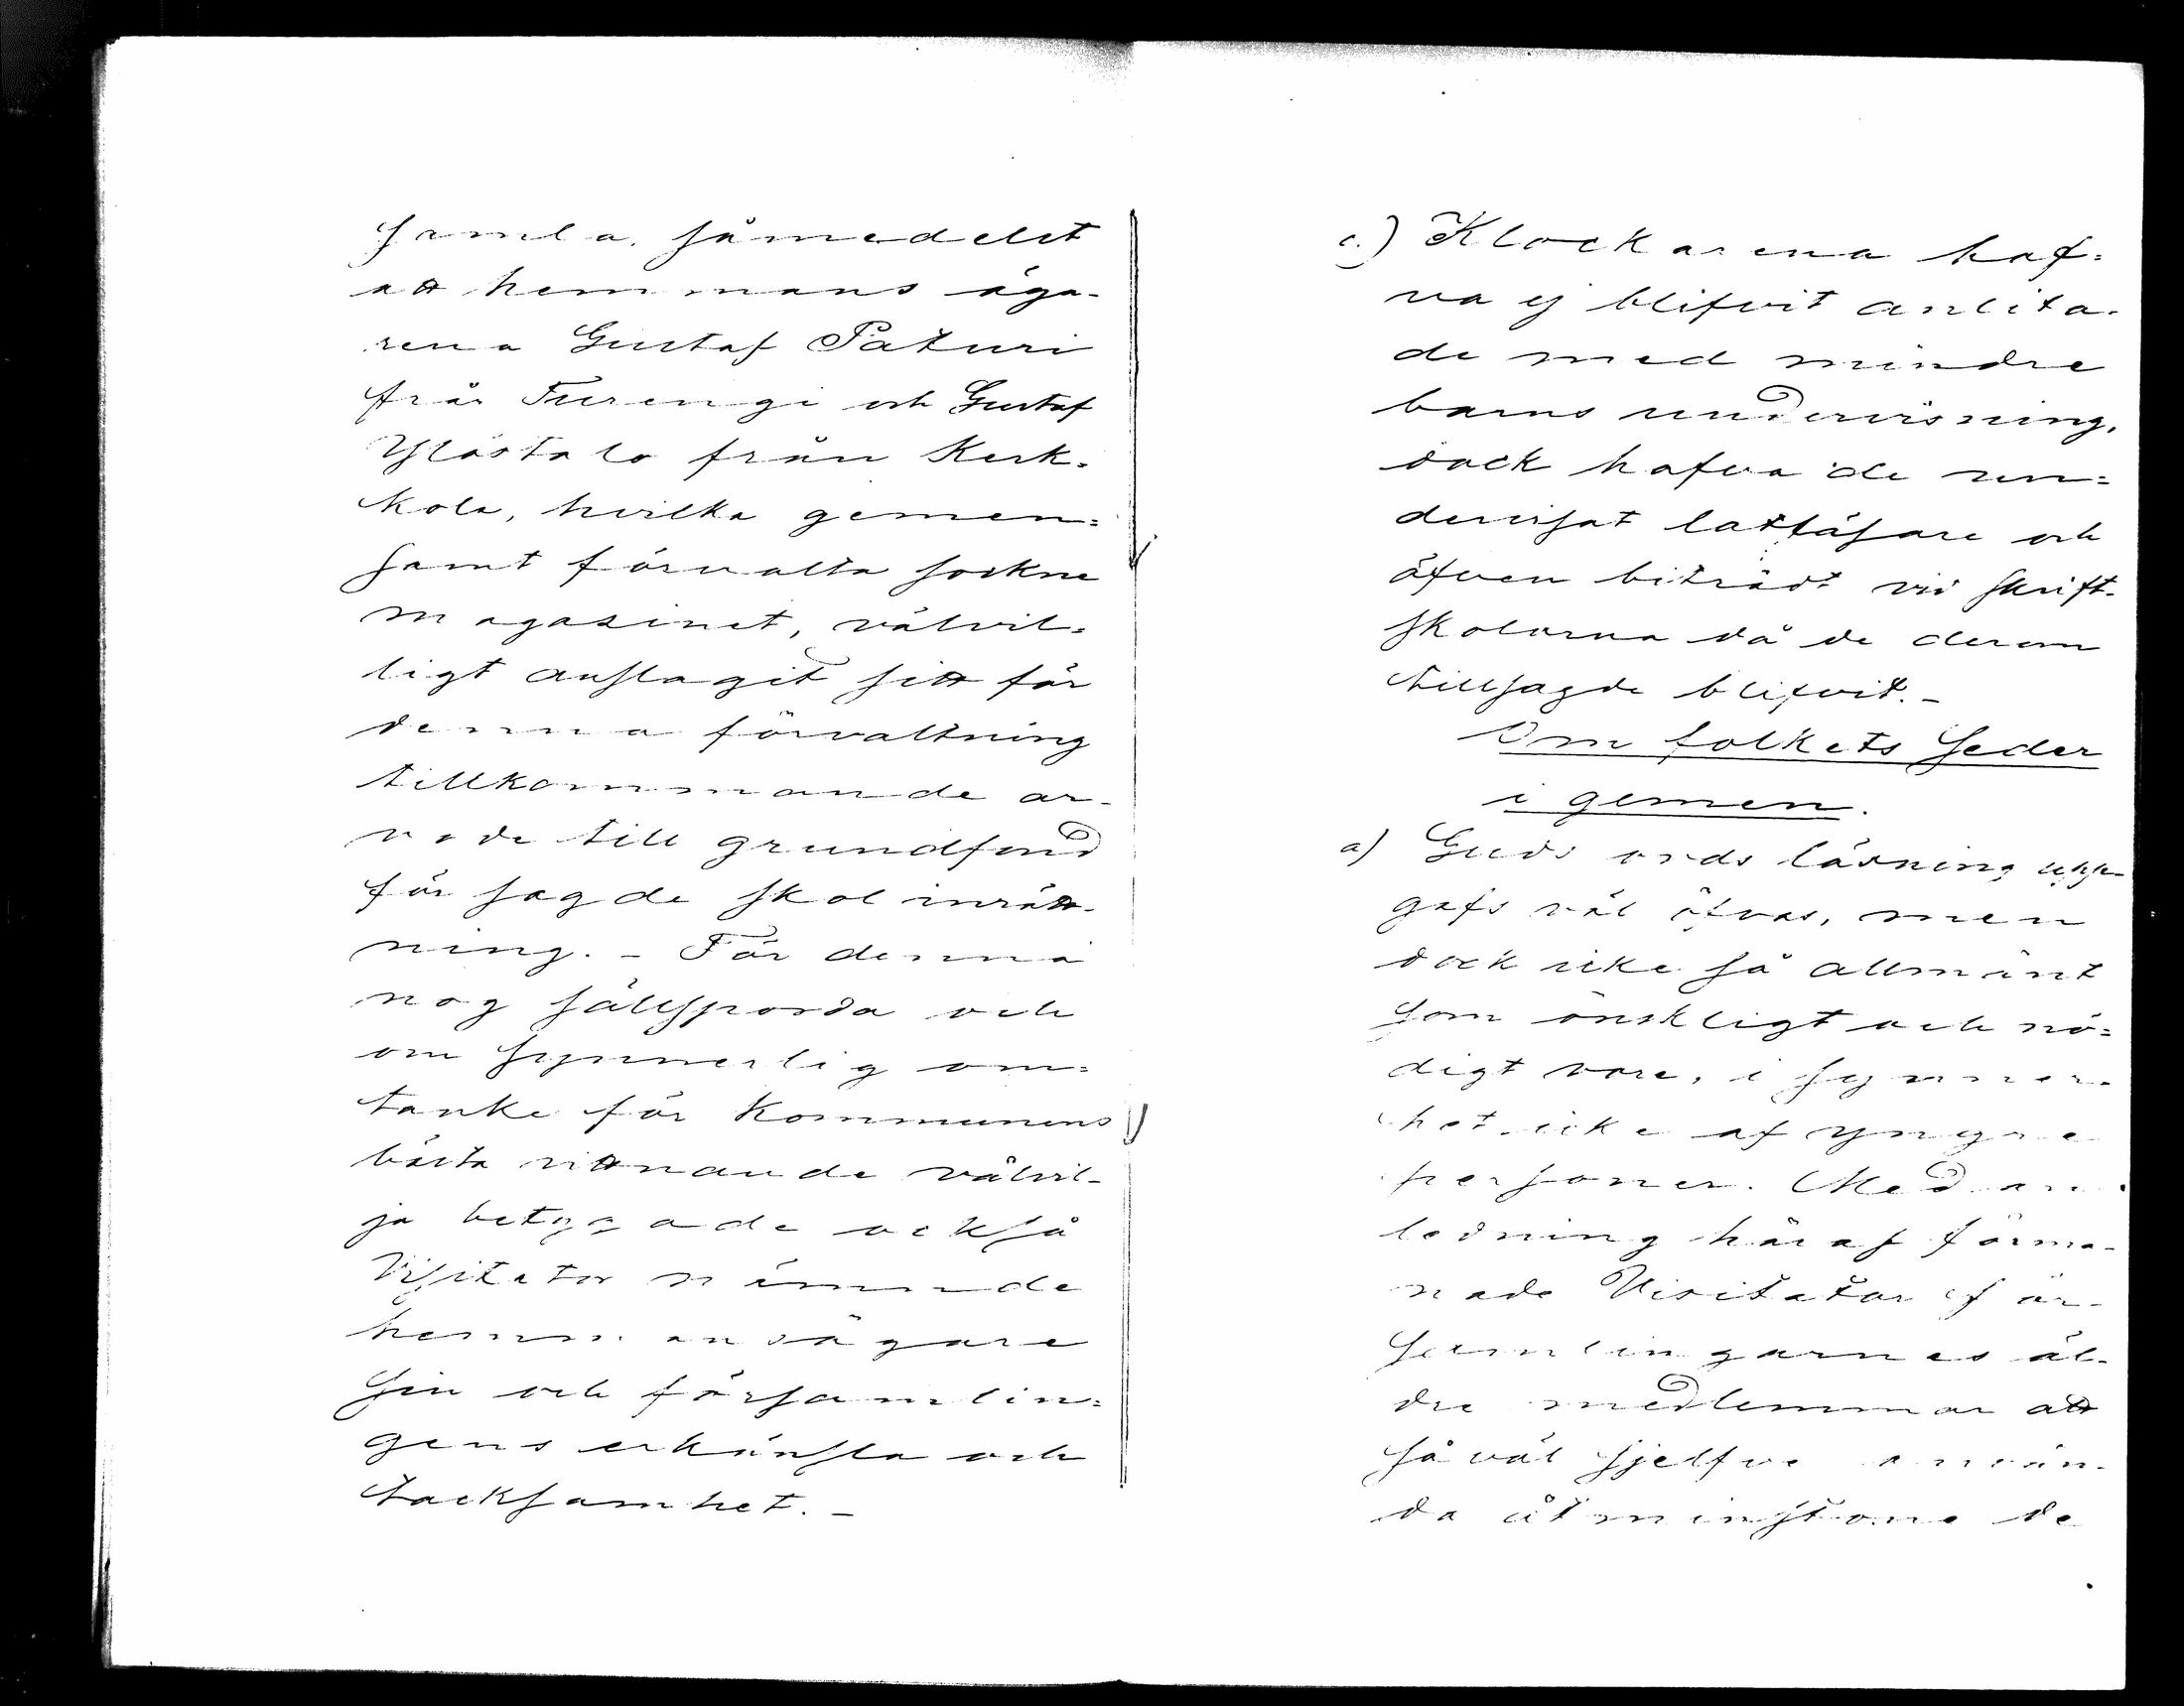 samla, såmedelst
att hemmans äga-
rena Gustaf Paturi
från Turengi och Gustaf
Ylöstalo från Kerk-
kola, hvilka gemen=
samt förvalta sockne
magasinet, välvil-
ligt anslagit sitt för
denna förvaltning
tillkommande ar-
vode till grundfond
för sagde skol inrätt-
ning. - För denna
nog sällsporda och
om synnerlig om=
tanke för Kommunens
bästa vittnande välvil-
ja betygade också
Visitator nämnde
hemmansägare
sin och församlin=
gens erkänsla och
tacksamhet. -
c.) Klockarena haf=
va ej blifvit anlita-
de med mindre
barns undervisning,
dock hafva de un=
dervisat lattläsare och
äfven biträdt vid skrift-
skolorna då de derom
tillsagde blifvit. -
Om folkets seder
i gemen.
a) Guds ords läsning upp-
gafs väl öfvas, men
dock icke så allmänt
som önskligt och nö=
digt vore, i synner-
het icke af yngre
personer. Med an-
ledning häraf förma-
nade Visitator för-
samlingarnes äl-
dre medlemmar att
så väl sjelfve använ-
da åtminstone de